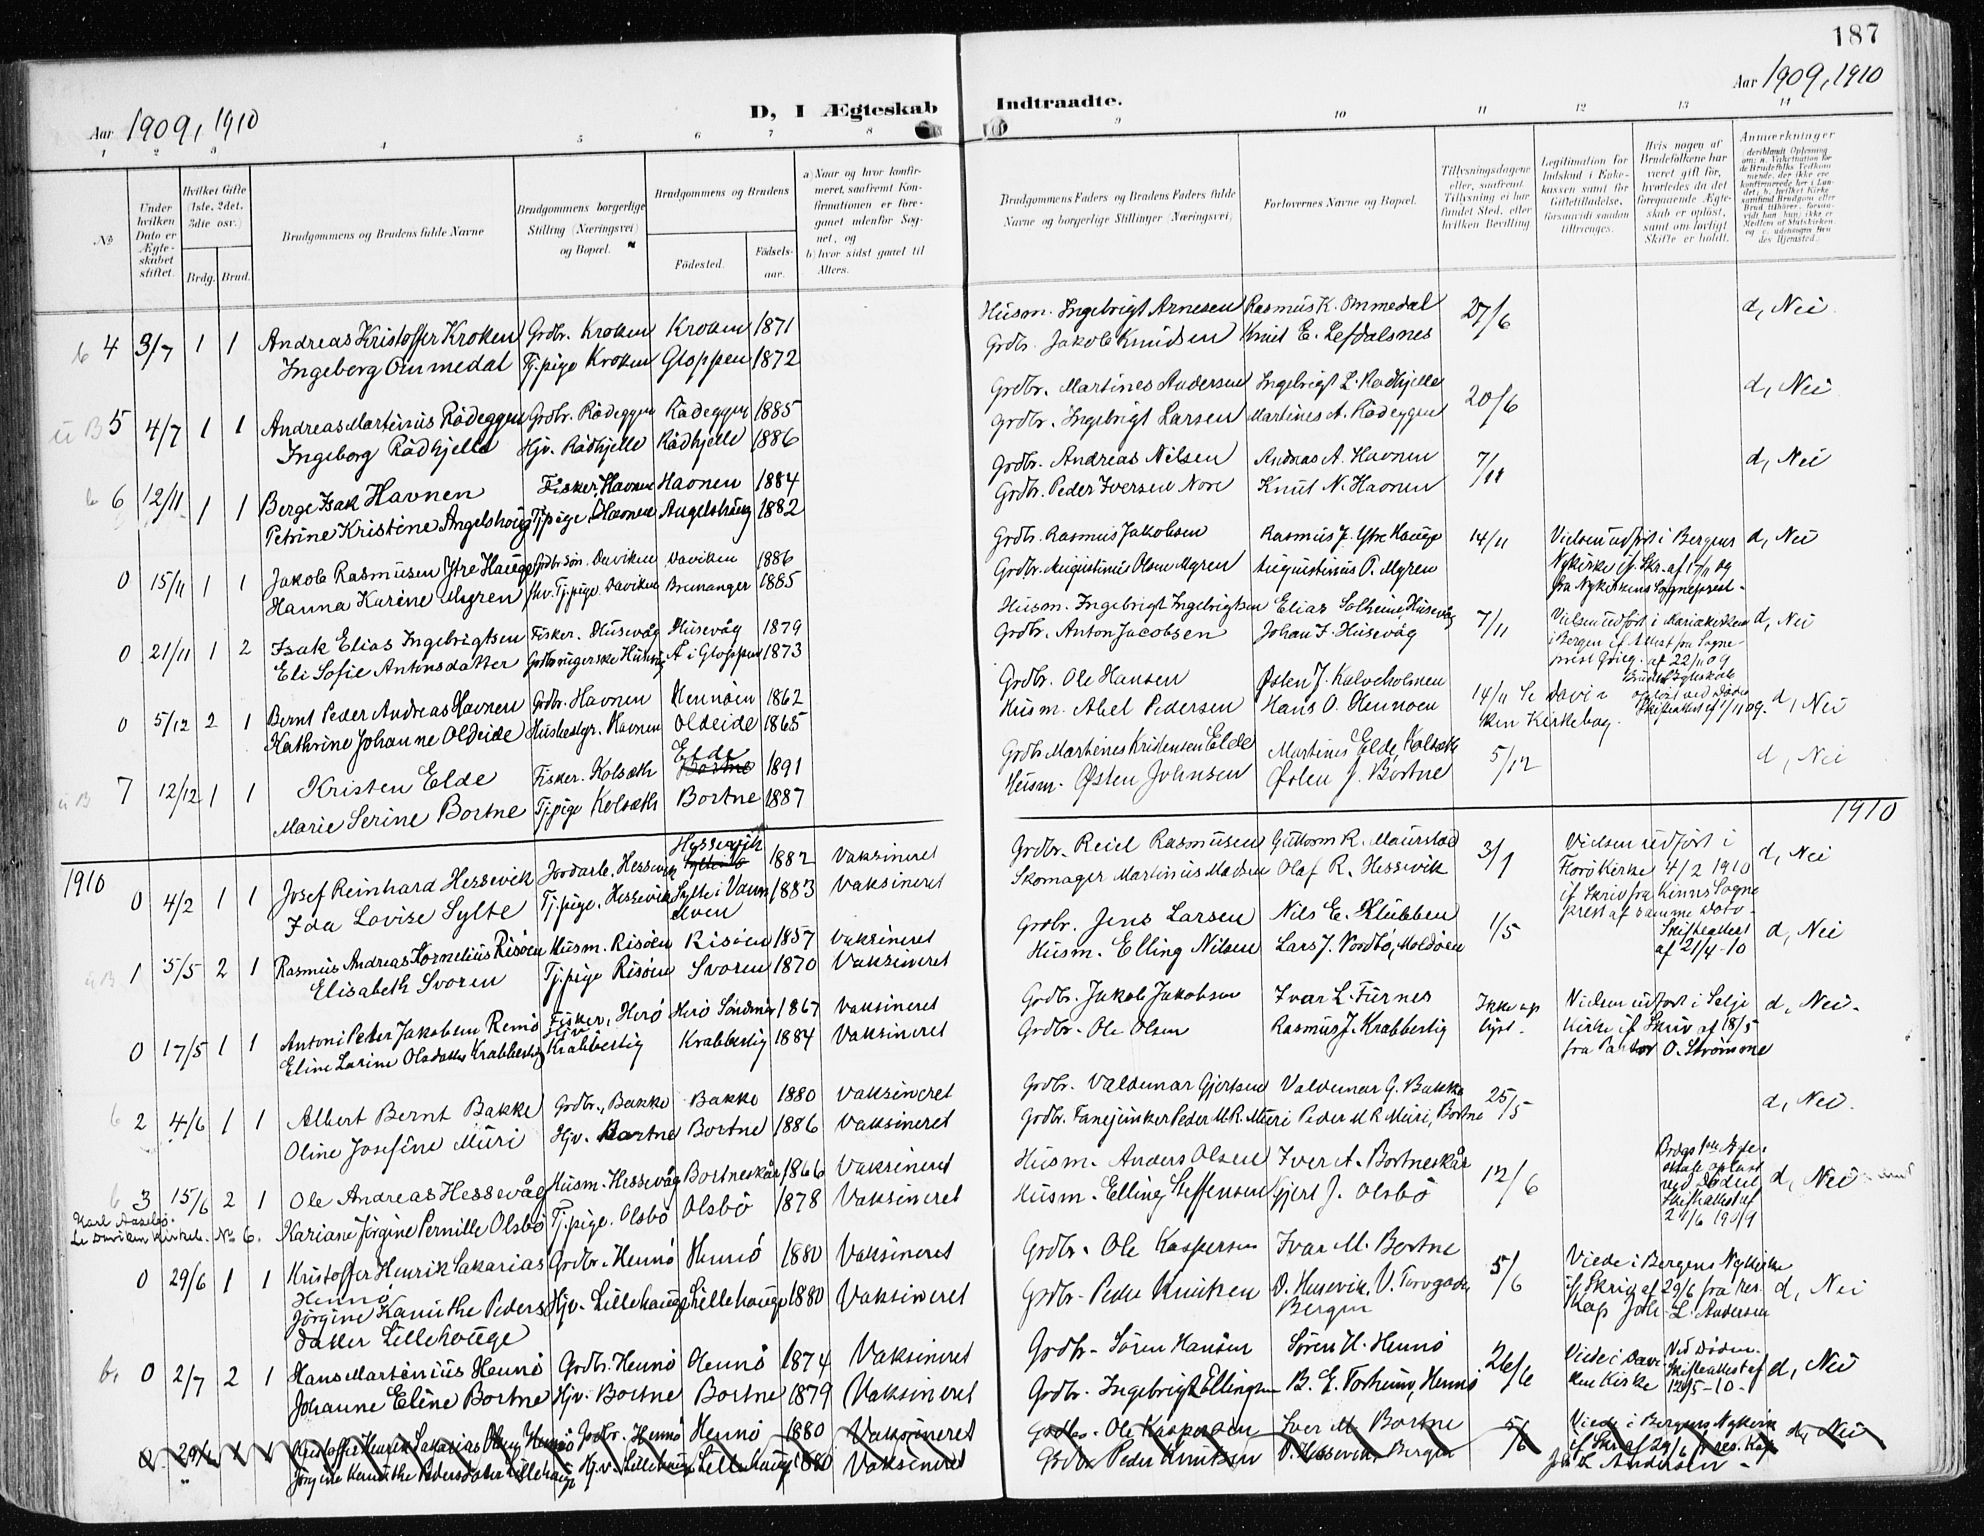 187
Aar 1909, 1910
D, I Ægteskab
Indtraadte.
Aar 1909, 1910
1 2 3 4 5 6 7 8 9 10 11 12 13 14
No
Under hvilken Dato er Ægteskabet stiftet.
Hvilket Gifte (1ste, 2det, 3die osv.)
Brdg. Brud.
Brudgommens og Brudens fulde Navne
Brudgommens borgerlige Stilling (Næringsvei) og Bopæl.
Brudgommens og Brudens
Fødested.
Fødselsaar.
a) Naar og hvor konfirmeret, saafremt Konfirmationen er foregaaet udenfor Sognet, og
b) hvor sidst gaaet til Alters.
Brudgommens Faders og Brudens Faders fulde Navne og borgerlige Stillinger (Næringsvei)
Forlovernes Navne og Bopæl.
Tillysningsdagene eller, saafremt Tillysning ei har fundet Sted, efter hvilken Bevilling
Legitimation for Indskud i Enkekassen samt for Giftetilladelse, forsaavidt saadan tiltrænges.
Hvis nogen af Brudefolkene har været gift før, hvorledes da det foregaaende Ægteskab er opløst, samt om lovligt Skifte er holdt.
Anmerkninger
b 4 3/7 1 1 Andreas Kristoffer Kroken Grdbr. Kroken Kroken 1871 Husm. Ingebrigt Arnesen Rasmus K. Ommedal 27/6 d, Nei
Ingeborg Ommedal Tj.pige Kroken Gloppen 1872 Grdbr. Jakob Knudsen Knut E. Lefdalsnes
u B 5 4/7 1 1 Andreas Martinius Rådeggen Grdbr. Rådeggen Rådeggen 1885 Grdbr. Martines Andersen Ingebrigt L. Rødhjelle 20/6 d, Nei
Ingeborg Rådhjelle Hjv. Rådhjelle Rådhjelle 1886 Grdbr. Ingebrigt Larsen Martines A. Rådeggen
b 6 12/11 1 1 Berge Isak Havnen Fisker, Havnen Havnen 1884 Grdbr. Andreas Nilsen Andreas A. Havnen 7/11 d, Nei
Petrine Kristine Angelshoug Tjpige, Havnen Angelshaug 1882 Grdbr. Peder Iversen Nore Knut N. Havnen
0 15/11 1 1 Jakob Rasmusen Ytre Hauge Grdbr søn. Daviken Daviken 1886 Grdbr. Rasmus Jakobsen Rasmus J. Ytre Hauge 14/11 Vielsen udført i Bergens d, Nei
Hanna Karine Myren Hv. Tj.pige. Daviken Bremanger 1885 Grdbr. Augustinus Olsen Myren Augustinus O. Myren Nykirke if. Skr. af 17/11 09
fra Nykirkens Sogneprest.
0 21/11 1 2 Isak Elias Ingebrigtsen Fisker. Husevåg Husevåg 1879 Husm. Ingebrigt Ingebrigtsen Elias Solheim, Husevåg 7/11 Vielsen udført i Mariakirken d, Nei
Eli Sofie Antonsdatter Husevåg Å i Gloppen 1873 Grdbr. Anton Jacobsen Johan I. Husevåg i Bergen if. Attest fra Sogneprest Grieg. af 22/11 09
0 5/12 2 1 Bernt Peder Andreas Havnen Grdbr. Havnen Hennøen 1862 Grdbr. Ole Hansen Østen J. Kalveholmen 14/11 Se Daviken Kirkebog.
Kathrine Johanne Oldeide Husbestyr. Havnen Oldeide 1865 Husm. Abel Pedersen Hans O. Hennøen Skifteattest af 1/11 09. d, Nei
u B 7 12/12 1 1 Kristen Elde Fisker. Kolseth Elde 1891 Grdbr Martines Kristensen Elde Martines Elde, Kolseth 5/12 d, Nei
Marie Serine Bortne Tj.pige Kolseth Bortne 1887 Husm. Østen Johnsen Østen J. Bortne
1910
1910
0 4/2 1 1 Josef Reinhard Hessevik Jordarb. Hessevik Hessevik 1882 Vaksineret Grdbr. Reiel Rasmusen Guttorm R. Maurstad 3/1 Vielsen udført i d, Nei
Ida Lovise Sylte Tj.pige. Hessevik Sylte i Vannelven 1883 Vaksineret Skomager Martinius Madsen Olaf R. Hessevik Florø Kirke 4/2 1910
if Skriv fra Kinns Sogneprest af samme Dato.
u B 1 5/5 2 1 Rasmus Andreas Kornelius Risøen Husm. Risøen Risøen 1857 Vaksineret Grdbr. Jens Larsen Nils E. Klubben 1/5 Skifteattest af 21/4-10 d, Nei
Elisabeth Svoren Tj.pige Risøen Svoren 1870 Vaksineret Husm. Elling Nilsen Lars J. Nordbø, Moldøen
0 17/5 1 1 Antoni Peter Jakobsen Remø Fisker, Herø Herø Søndmør 1867 Vaksineret Grdbr. Jakob Jakobsen Ivar L. Furnes Ikke oplyst. Vielsen udført i Selje d, Nei.
Eline Larine Olsdatter Krabbestig Hjv. Krabbestig Krabbestig 1884 Vaksineret Grdbr. Ole Olsen Rasmus J. Krabbestig Kirke if Skriv af 18/5
fra Pastor O. Strømme
b 2 4/6 1 1 Albert Bernt Bakke Grdbr., Bakke Bakke 1880 Vaksineret Grdbr. Valdemar Gjertsen Valdemar G. Bakke 25/5 d, Nei.
Oline Josefine Muri Hjv. Bortne Bortne 1886 Vaksineret Grdbr. Fanejunker Peder M.R. Muri Peder M R Muri, Bortne
b 3 15/6 2 1 Ole Andreas Hessevåg Husm. Hessevåg Bortneskår 1866 Vaksineret Husm. Anders Olsen Iver A. Bortneskår 12/6 Brdgs 1ste Ægteskab opløst ved Døden d, Nei
Kariane Jørgine Pernille Olsbø Tj.pige. Olsbø Olsbø 1878 Vaksineret Husm. Elling Steffensen Gjert J. Olsbø Skifteattest af 21/6 1909
Karl Aasebø.
Se Daviken Kirkeb. No 6.
0 29/6 1 1 Kristoffer Henrik Sakarias Hennø Grdbr. Hennø Hennø 1880 Vaksineret Grdbr. Ole Kaspersen Ivar M. Bortne 5/6 Viede i Bergens Nykirke d, Nei
Jørgine Kanuthe Pedersdatter Lillehouge Hjv. Lillehauge Lillehauge 1880 Vaksineret Grdbr. Peder Knutsen O. Husevik, V. Torvgade Bergen if Skriv af 29/6 fra res. Kap Joh. L. Andersen
b, 0 2/7 2 1 Hans Martinius Hennø Grdbr. Hennø Hennø 1874 Vaksineret Grdbr. Søren Hansen Søren H. Hennø 26/6 Viede i Daviken Kirke Ved Døden. Skifteattest af 12/5-10. d, Nei
Johanne Eline Bortne Hjv. Bortne Bortne 1879 Vaksineret Grdbr. Ingebrigt Ellingsen B. E. Torheim, Hennø
0 29/6 1 1 Kristoffer Henrik Sakarias Hennø Jordbr. Hennø Hennø 1880 Vaksineret Grdbr. Ole Kaspersen Iver M. Bortne 5/6 Viede i Bergens Nykirke d, Nei
Jørgine Kanuthe Pedersdatter Lillehauge Hjv. Lillehauge Lillehauge 1880 Vaksineret Grdbr Peder Knutsen O. Hessevik, Bergen if Skr. af 29/6 fr res. Kap
Joh L Andersen